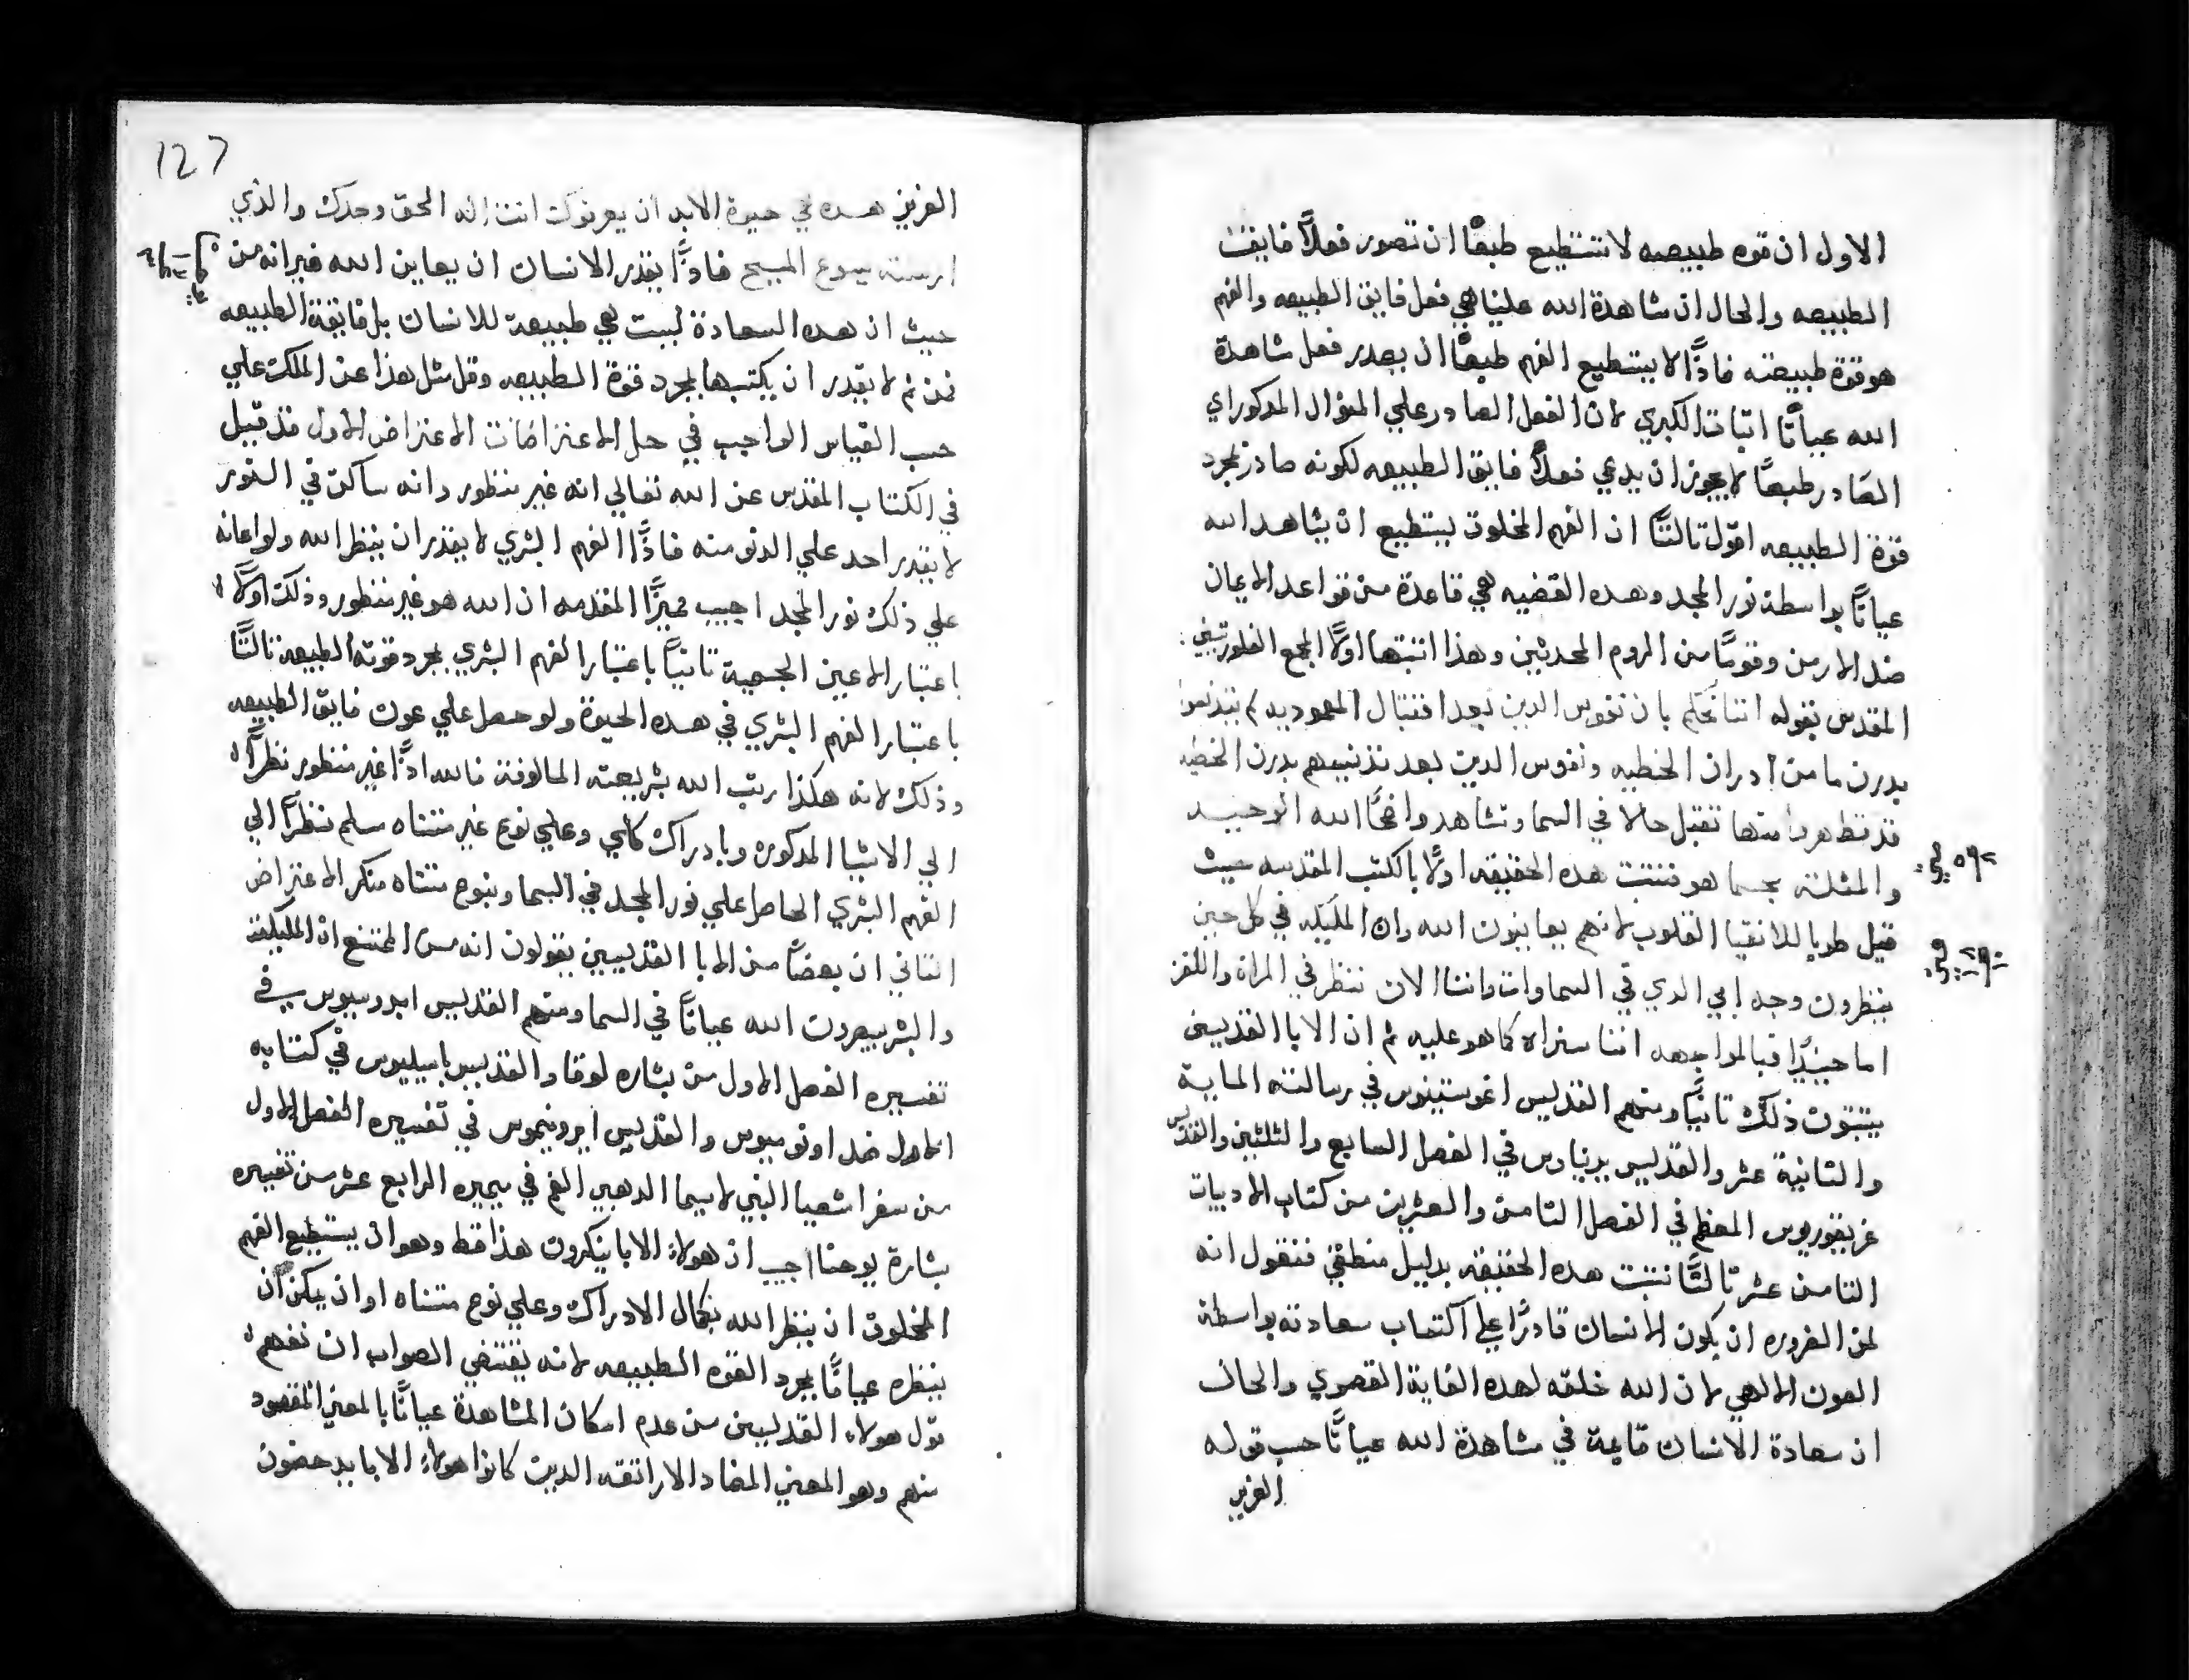 الاول ان قوه طبيعيه لا تستطيع طبعًا ان تصور فعلاً فايقت
الطبيعه والحال ان مشاهدة الله عليا هي فعل فايق الطبيعه والفهم
هو قوة طبيعته فاذًا لا يستطيع الفهم طبعًا ان يصدر فعل مشاهدة
الله عيانًا اتبات الكبري لان الفعل الصادر علي المنوال المذكور اي
الصادر طبعًا لا يجوز ان يدعي فعلاً فايق الطبيعه لكونه صادر بمجرد
قوة الطبيعه اقول ثالثًا ان الفهم المخلوق يستطيع ان يشاهد الله
عيانًا بواسطة نور المجد وهده القضيه هي قاعدة من قواعد الايمان
ضد الارمن وقومًا من الروم المحدثين وهذا اتبتها اولاً المجمع الفلورتيني
المقدس بقوله اننا نحكم بان نفوس الدين بعد اقتبال المعموديه لم يتدنسوا
بدرن ما من ادران الخطيه ونفوس الدين بعد تدنيسهم بدرن الخطيه
قد تطهروا منها تقبل حالا في السما وتشاهد واضحًا الله الوحيد
والمثلث بحسبما هو فتتبت هده الحقيقه اولاً بالكتب المقدسه حيث
قيل طوبا للانقيا القلوب لانهم يعاينون الله وان المليكه في كل حين
ينظرون وجه ابي الدي في السماوات واننا الان ننظر في المراة واللغز
اما حينيدًا فبالمواجهه اننا سنراه كما هو عليه ثم ان الابا القديسين
يتبتون ذلك ثانيًا ومنهم القديس اغوستينوس في رسالته الماية
والثانية عشر والقديس برنادرس في الفصل السابع والثلثين والقديس
غريغوريوس المعظم في الفصل الثامن والعشرين من كتاب الادبيات
الثامن عشر ثالثًا نتبت هده الحقيقه بدليل منطقي فنقول انه
لمن الضروره ان يكون الانسان قادرًا علي اكتساب سعادته بواسطة
العون الالاهي لان الله خلقه لهده الغاية القصوي والحال
ان سعادة الانسان قايمة في مشاهدة الله عيانًا حسب قوله
العزيز
127
العزيز هده هي حيوة الابد ان يعرفوك انت اله الحق وحدك والذي
ارسلته يسوع المسيح فاذًا يقدر الانسان ان يعاين الله غير انه من
حيث ان هده السعادة ليست هي طبيعية للانسان بل فايقة الطبيعه
فمن ثم لا يقدر ان يكتسبها بمجرد قوة الطبيعه وقل مثل هذا عن الملك علي
حسب القياس الواجب في حل الاعتراضات الاعتراض الاول قد قيل
في الكتاب المقدس عن الله تعالي انه غير منظور وانه ساكن في النور
لا يقدر احد علي الدنو منه فاذًا الفهم البشري لا يقدر ان ينظر الله ولو اعانه
علي ذلك نور المجد اجيب مميزًا المقدمه ان الله هو غير منظور وذلك اولاً
باعتبار الاعين الجسميه ثانيًا باعتبار الفهم البشري بمجرد قوته الطبيعه ثالثًا
باعتبار الفهم البشري في هده الحيوة ولو حصل علي عون فايق الطبيعه
وذلك لانه هكذا رتب الله بشريعته المالوفة فالله اذًا غير منظور نظرًا
الي الاشيا المدكوره وبادراك كلي وعلي نوع غير متناه سلم نظرًا الي
الفهم البشري الحاصل علي نور المجد في السما وبنوع متناه منكر الاعتراض
التاني ان بعضًا من الابا القديسين يقولون انه من الممتنع ان المليكة
والبشر يرون الله عيانًا في السما ومنهم القديس ايدوسيوس في
تفسيره الفصل الاول من بشاره لوقا والقديس باسيليوس في كتابه
الاول ضد اونوميوس والقديس ايرونيموس في تفسيره الفصل الاول
من سفر اشعيا النبي لاسيما الدهبي الفم في ميمره الرابع عشر من تفسيره
بشارة يوحنا اجيب ان هولاء الابا ينكرون هذا قط وهو ان يستطيع الفهم
المخلوق ان ينظر الله بكمال الادراك وعلي نوع متناه او ان يمكن ان
ينظره عيانًا بمجرد القوه الطبيعه لانه يقتضي الصواب ان نفهم
قول هولاء القديسين من عدم امكان المشاهدة عيانًا بالمعني المقصود
منهم وهو المعني المضاد الاراتقه الدين كانوا هولاء الابا يدحضون